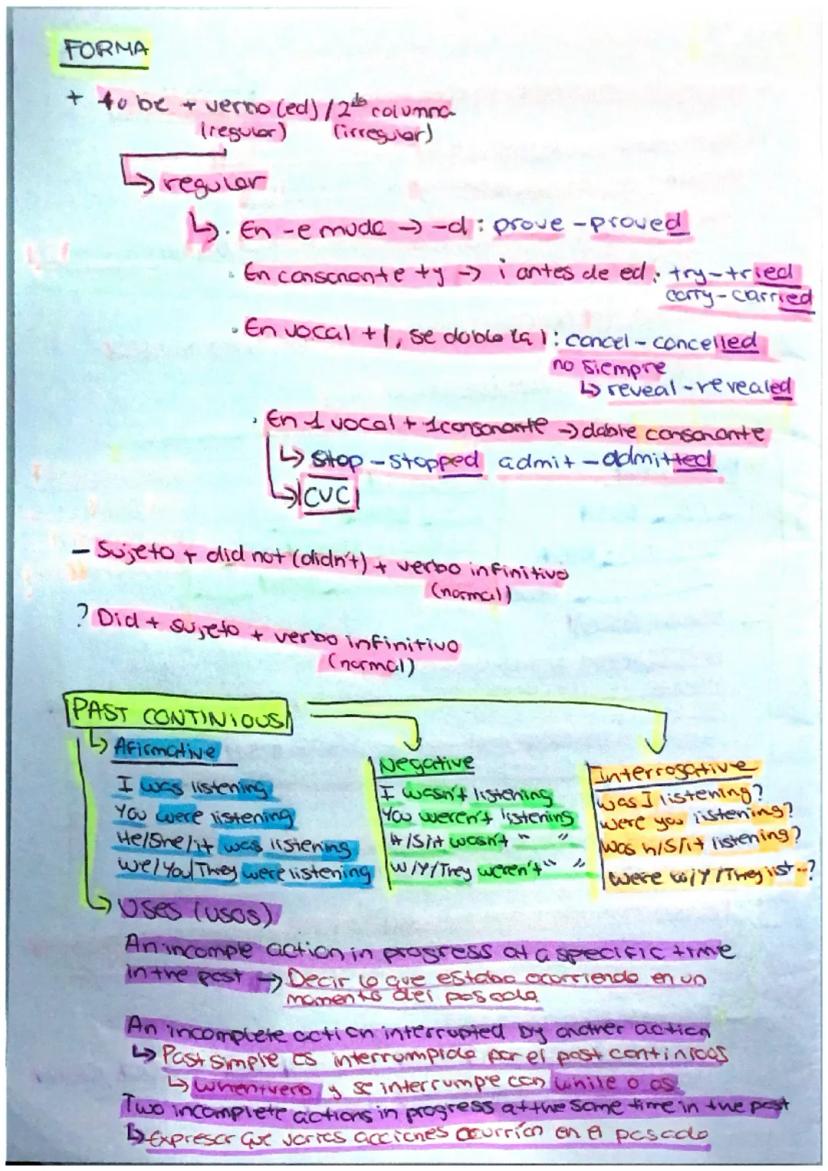 FORMA
+ to be + verbo (ed) / 2da columna
(regular) (irregular)
↳ regular
↳ · En -e muda → -d : prove - proved
· En consonante + y → i antes de ed : try - tried
carry - carried
· En vocal + l, se dobla la l : cancel - cancelled
no siempre
↳ reveal - revealed
· En 1 vocal + 1 consonante → doble consonante
↳ stop - stopped admit - admitted
→ CVC
- Sujeto + did not (didn't) + verbo infinitivo
(normal)
? Did + sujeto + verbo infinitivo
(normal)
PAST CONTINIOUS
↳ Afirmative
I was listening
You were listening
He/She/it was listening
We/You/They were listening
Negative
I wasn't listening
You weren't listening
H/S/it wasn't " "
W/Y/They weren't " "
Interrogative
Was I listening?
Were you listening?
Was h/S/it listening?
Were w/Y/They list..?
→ USES (USOS)
An incomple action in progress at a specific time
in the past → Decir lo que estaba ocurriendo en un
momento del pasado
An incomplete action interrupted by another action
↳ Past simple es interrumpido por el past continios
↳ when + y se interrumpe con while o as
Two incomplete actions in progress at the same time in the past
↳ Expresar que varias acciones ocurrían en el pasado